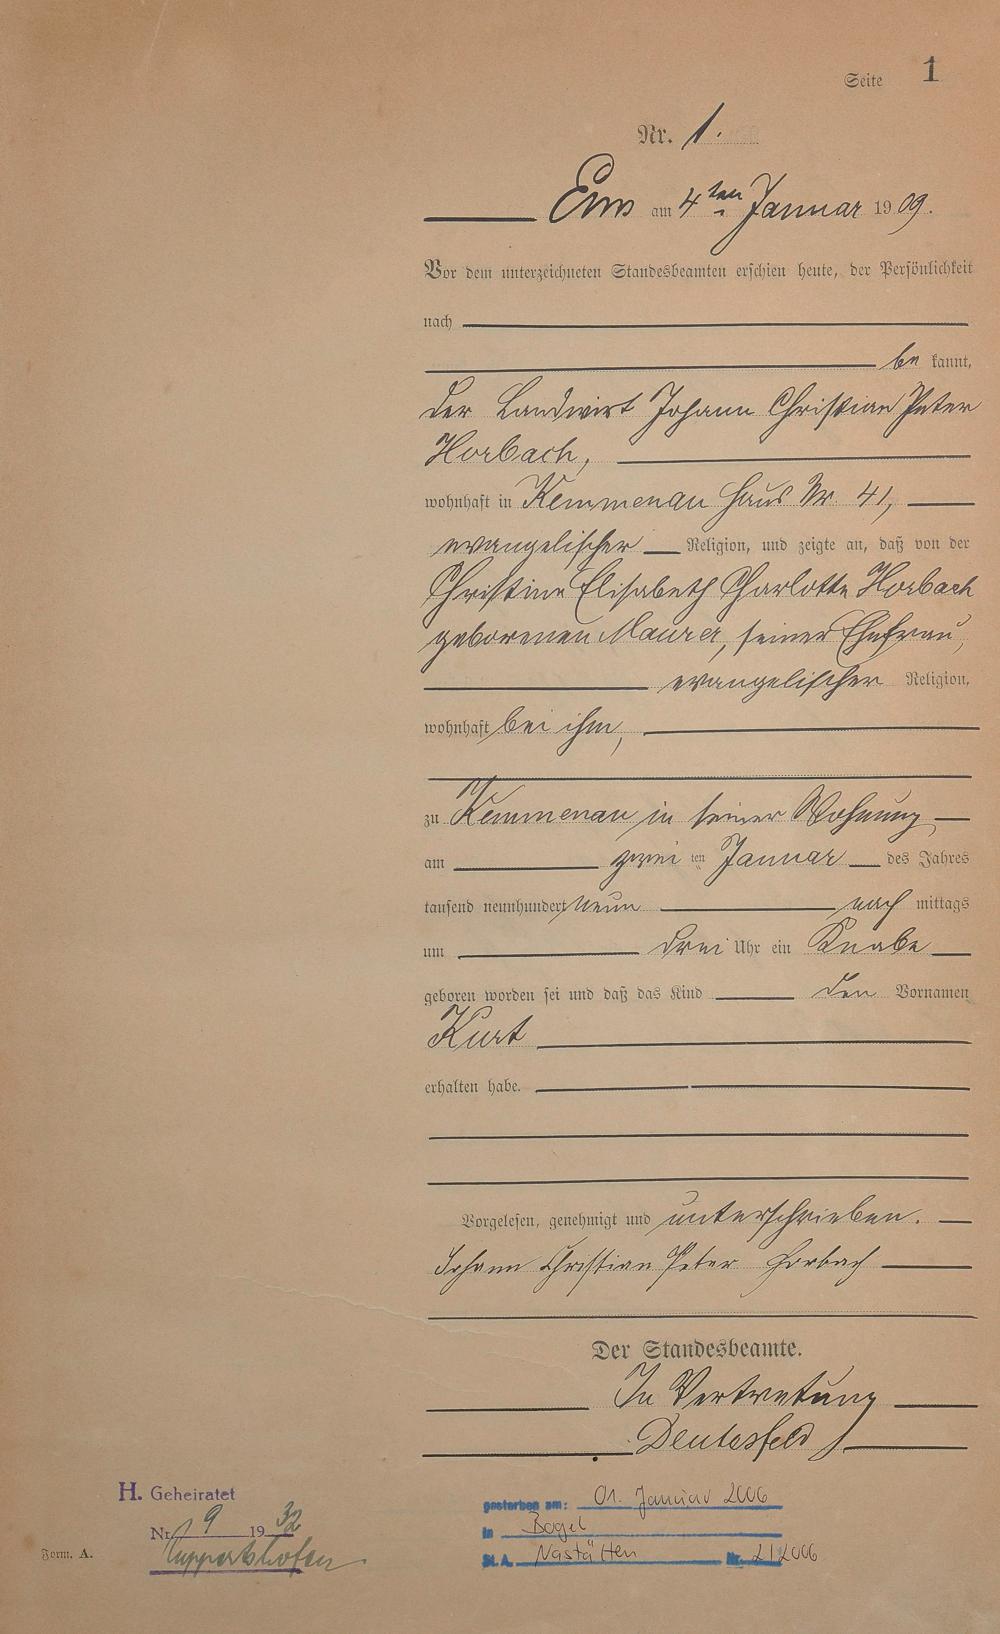 Seite 1
Nr. 1.
Ems am 4ten Januar 1909.
Vor dem unterzeichneten Standesbeamten erschien heute, der Persönlichkeit
nach
be kannt,
der Landwirt Johann Christian Peter
Horbach,
wohnhaft in Kemmenau Haus Nr. 41,
evangelischer Religion, und zeigte an, daß von der
Christine Elisabeth Charlotte Horbach
geborenen Maurer, seiner Ehefrau,
evangelischer Religion,
wohnhaft bei ihm,
zu Kemmenau in seiner Wohnung
am zwei ten Januar des Jahres
tausend neunhundert neun nach mittags
um drei Uhr ein Knabe
geboren worden sei und daß das Kind den Vornamen
Kurt
erhalten habe.
Vorgelesen, genehmigt und unterschrieben.
Johann Christian Peter Horbach
Der Standesbeamte.
In Vertretung
Deutesfeld
H. Geheiratet
Nr. 9 1932
Ruppertshofen
Form. A.
gestorben am: 01. Januar 2006
in Bogel
St.A. Nastätten Nr. 2/2006